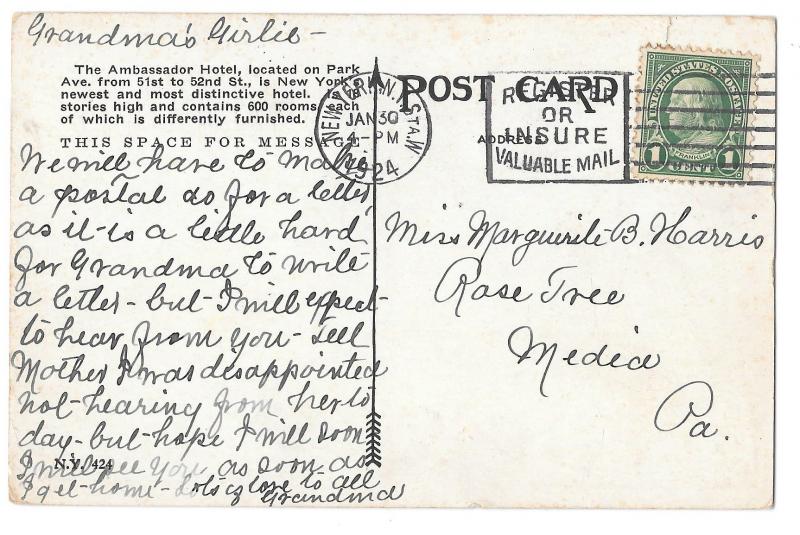 Grandma's Girlie -
The Ambassador Hotel, located on Park
Ave. from 51st to 52nd St., is New York's
newest and most distinctive hotel. Is
stories high and contains 600 rooms, each
of which is differently furnished.
THIS SPACE FOR MESSAGE
We will have to make
a postal do for a letter,
as it is a little hard
for Grandma to write
a letter - but I will expect
to hear from you - tell
Mother I was disappointed
not hearing from her to
day - but hope I will soon
I will see you as soon as
N.Y. 424
I get home - lots of love to all
Grandma
POST CARD
ADDRESS
NEW YORK, N.Y. STA. W
JAN 30
4-PM
1924
REGISTER
OR
INSURE
VALUABLE MAIL
UNITED STATES POSTAGE
FRANKLIN
1 CENT 1
Miss Marguerite B. Harris
Rose Tree
Media
Pa.